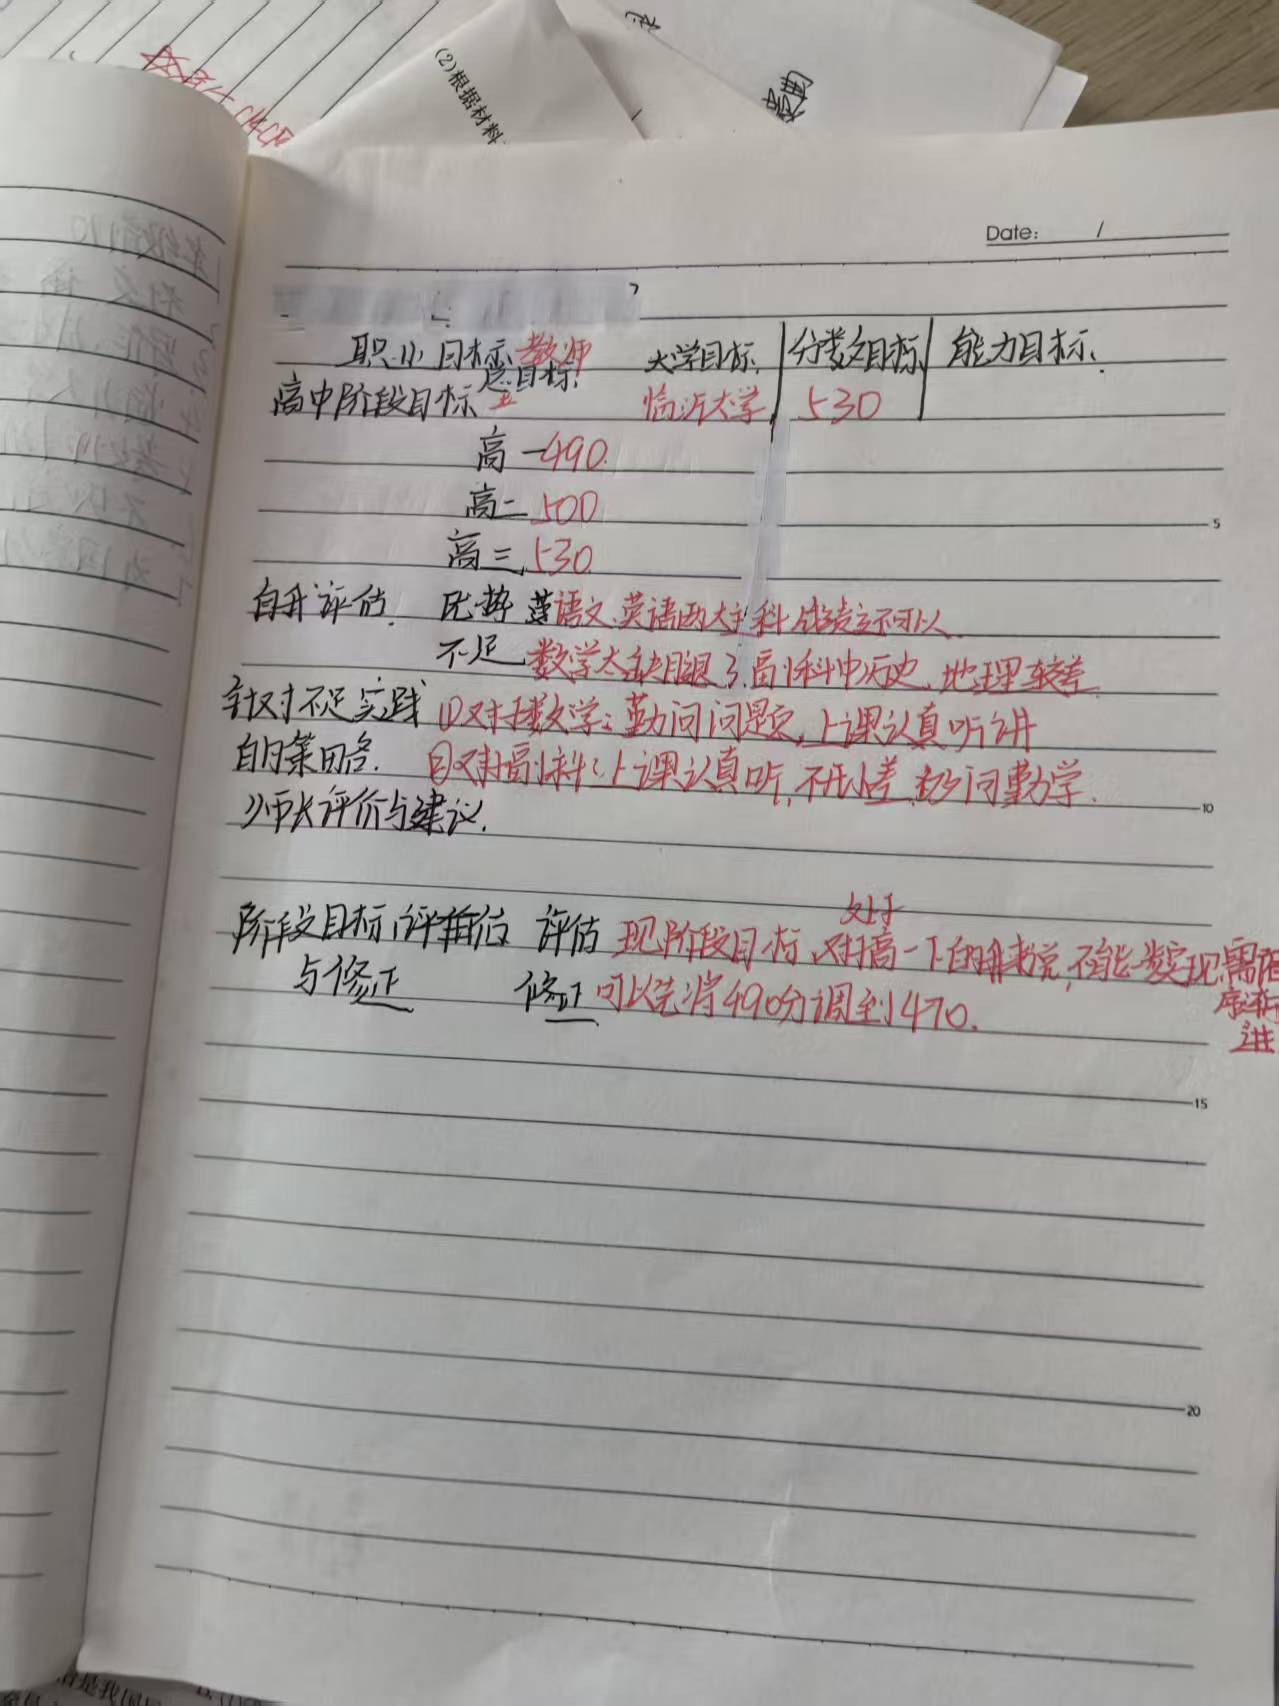 (2)根据材料
Date: /
职业目标 教师 大学目标. 分数目标 能力目标.
总目标.
高中阶段目标 临沂大学 530
高一490.
高二 500
高三 530
5
自我评估. 优势 语文.英语两大主科成绩还可以
不足 数学太拖腿了.副科中历史.地理较差.
针对不足实践 ①对于数学:勤问问题,上课认真听讲
的策略. ②对于副科:上课认真听,不开小差.多问勤学.
10
师长评价与建议.
处于
阶段目标评估 评估 现阶段目标,对高一下的我来说,不能实现,需
与修正 修正 可以先将490分调到470.
进
15
20